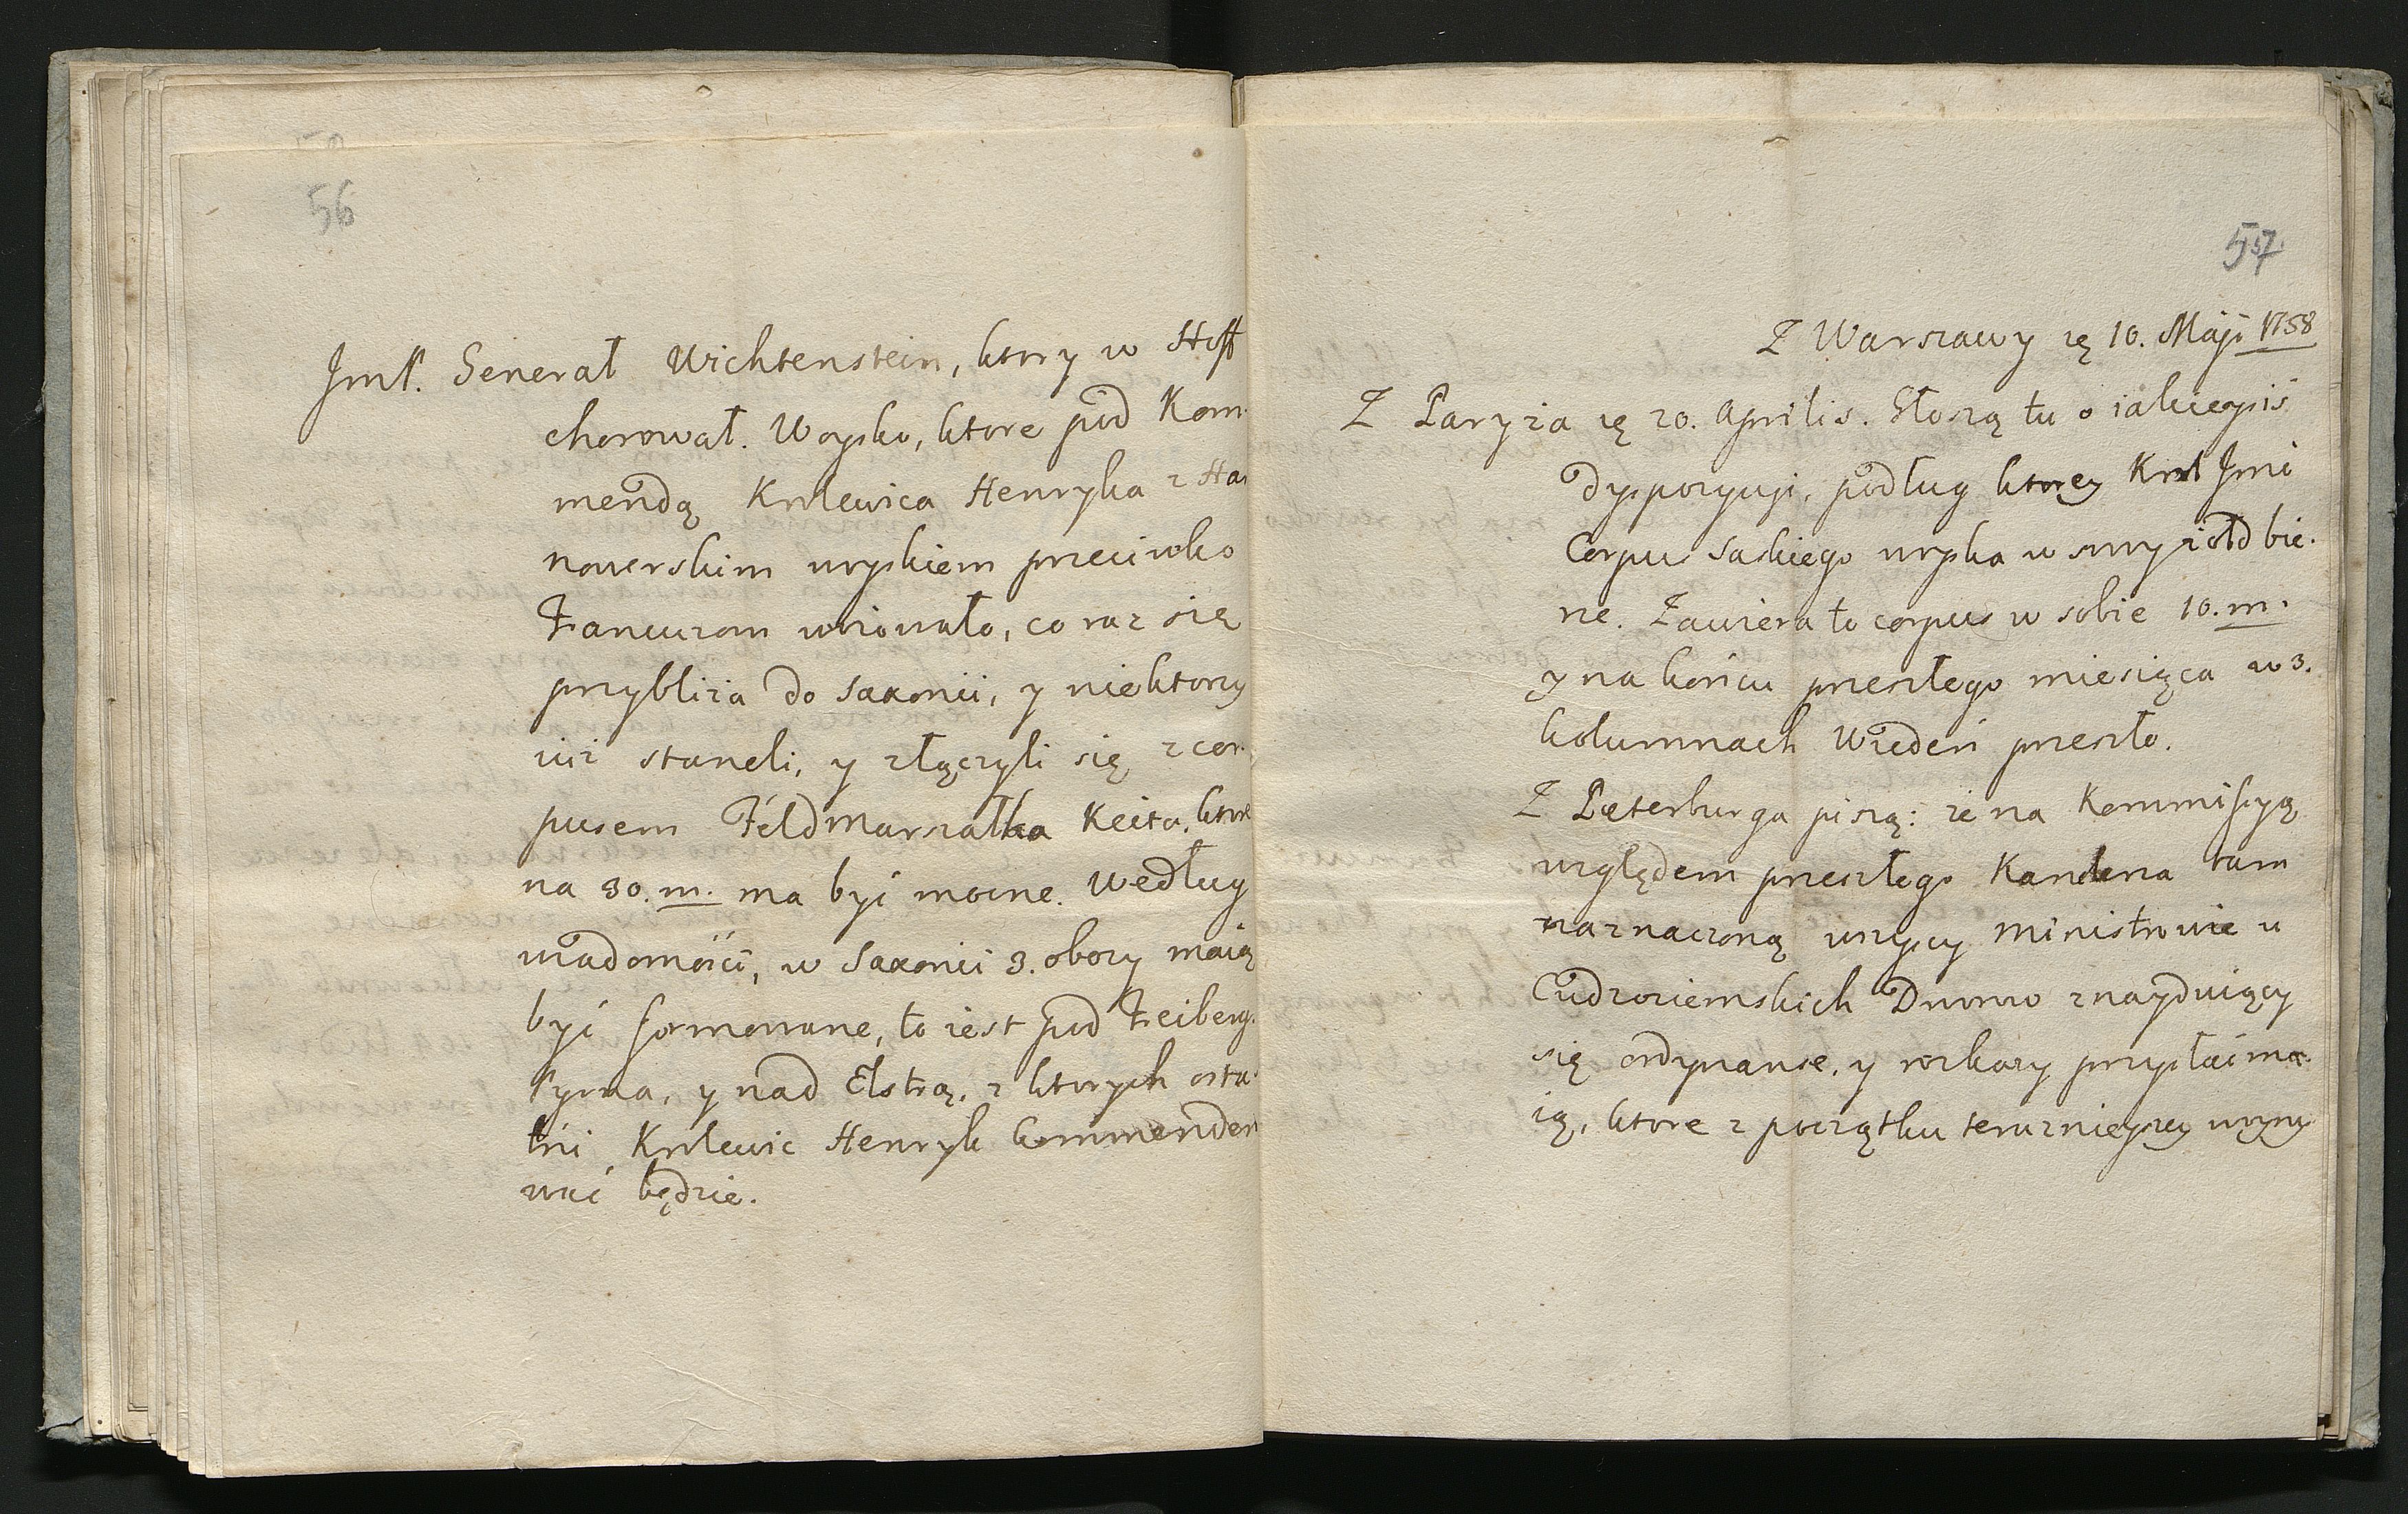 56
Jmć. Generał Wichtenstein, ktory w Hoff
chorował. Woysko, ktore pod Kom-
mendą Krolewica Henryka z Ha
noverskim woyskiem przeciwko
Francuzom woiowało, co raz się
przybliża do Saxonii, y niektorzy
iuż staneli, y złączyli się z cor-
pusem Feldmarszałka Keita, ktore
na 30. m. ma być mocne. Według
wiadomości, w Saxonii 3. obozy maią
być formowane, to iest pod Freiberg.
Pyrna, y nad Elstrą, z ktorych osta-
tni Krolewic Henryk kommendero
wać będzie.
57
Z Warszawy rę 10. Maji 1758
Z Paryża rę 20. Aprilis. Głoszą tu o iakieyiś
dyspozycyi, podług ktorey Krol Jmć
Corpus Saskiego woyska w swoy żołd bie-
rze. Zawiera to corpus w sobie 10. m.
y na końcu przeszłego miesiąca w 3.
kolumnach Wiedeń przeszło.
Z Peterburga piszą: że na Kommissyą
względem przeszłego Kanclerza tam
naznaczoną wszyscy Ministrowie u
Cudzoziemskich Dworow znayduiący
się ordynanse, y rozkazy przysłać ma-
ią, ktore z początku teraznieyszey woyny